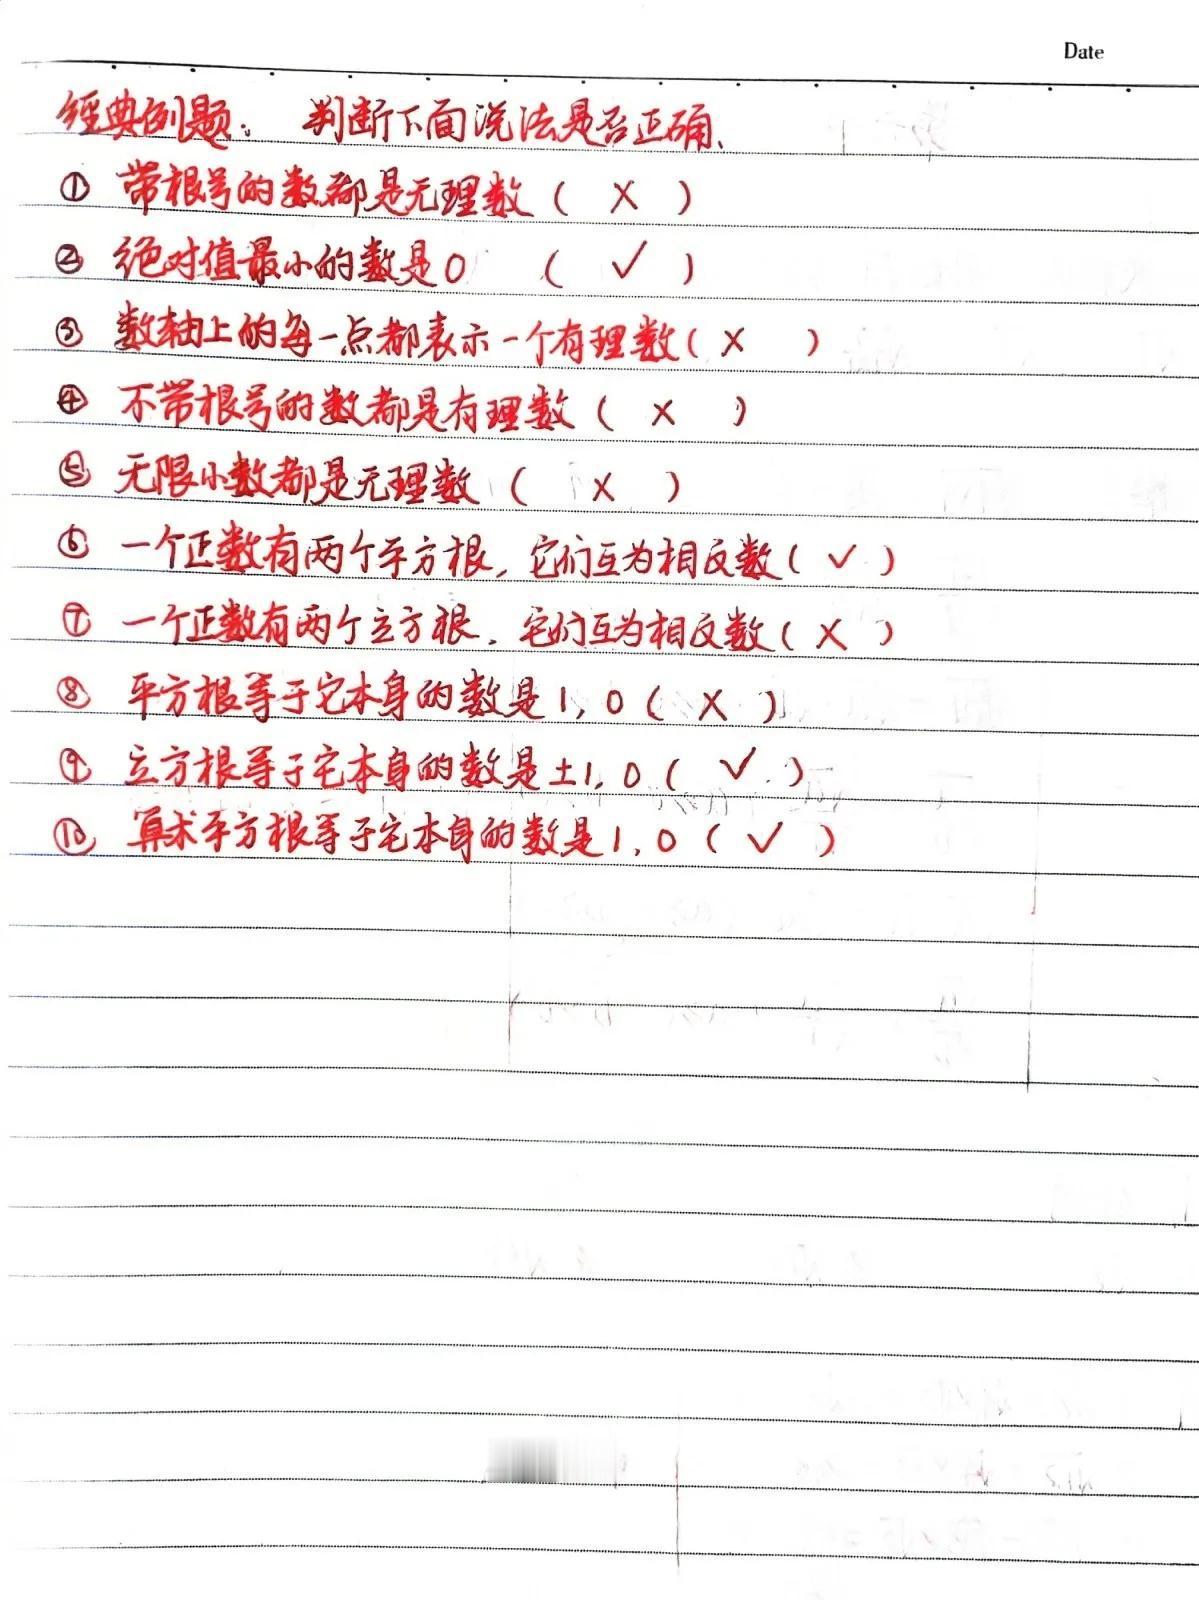 Date
经典例题: 判断下面说法是否正确、
① 带根号的数都是无理数 ( X )
② 绝对值最小的数是0 ( ✓ )
③ 数轴上的每一点都表示一个有理数( X )
④ 不带根号的数都是有理数 ( X )
⑤ 无限小数都是无理数 ( X )
⑥ 一个正数有两个平方根, 它们互为相反数( ✓ )
⑦ 一个正数有两个立方根, 它们互为相反数( X )
⑧ 平方根等于它本身的数是1, 0 ( X )
⑨ 立方根等于它本身的数是±1, 0 ( ✓ )
⑩ 算术平方根等于它本身的数是1, 0 ( ✓ )